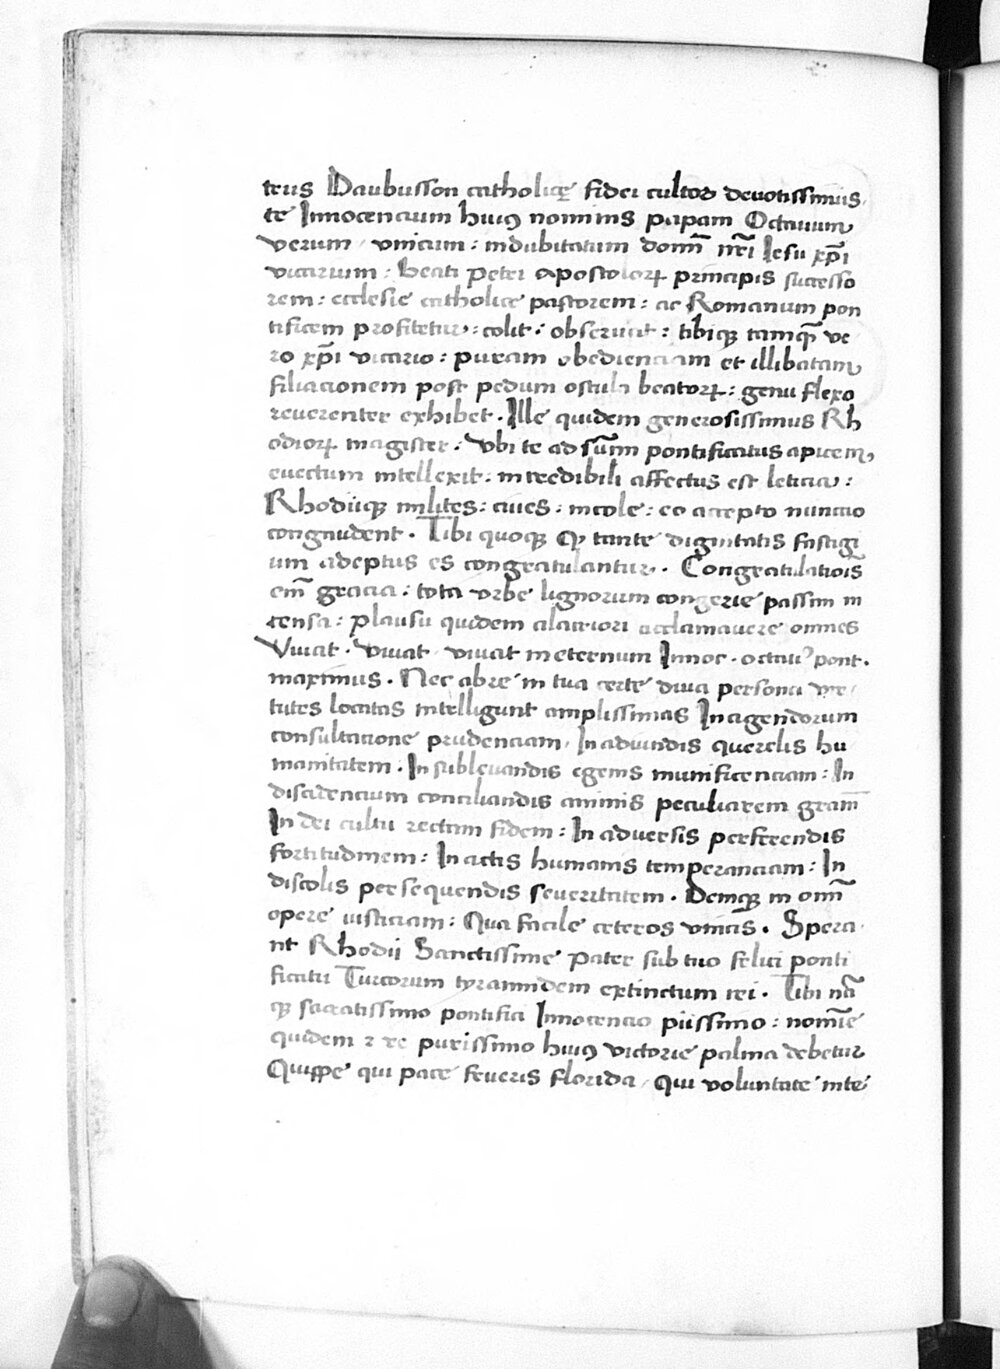 trus Daubusson catholicę fidei cultor devotissimus.
te Innocencium huiꝰ nominis papam Octauum
verum / vnicum : indubitatum domī nr̄i Iesu xp̄i
vicarium : beati Petri apostoloꝝ principis successo
rem : ecclesie catholice pastorem : ac Romanum pon
tificem profitetur : colit : obseruat : tibiqꝫ tamqꝫ̄ ve
ro xp̄i vicario : puram obedienciam et illibatam
filiacionem post pedum oscula beatoꝝ : genu flexo
reuerenter exhibet . Ille quidem generosissimus Rh
odioꝝ magister : vbi te ad sūm̄ pontificatus apicem
euectum intellexit : incredibili affectus est leticia :
Rhodiiqꝫ milites : ciues : incole : eo accepto nuncio
congaudent . Tibi quoqꝫ qꝙ tante dignitatis fastigi
um adeptus es congratulantur . Congratulatiois̄
em̄ gracia : tota vrbe lignorum congerie passim in
censa : plausu quidem alacriori acclamauere omnes
Viuat . viuat . viuat ineternum Innoc . octauꝰ pont .
maximus . Nec abre in tua certe diua persona vir
tutes locatas intelligunt amplissimas In agendorum
consultacione prudenciam . In adiundis querelis hu
manitatem . In subleuandis egenis munificenciam : In
discidencium conciliandis animis peculiarem gram̄
In dei cultu rectam fidem : In aduersis perferendis
fortitudinem : In actis humanis temperanciam : In
discolis persequendis seueritatem . Deniqꝫ in om̄i
opere iusticiam : Qua facile ceteros vincis . Spera
nt Rhodii Sanctissime Pater sub tuo felici ponti
ficatu Turcorum tyrannidem extinctum iri . Tibi nā
qꝫ sacratissimo pontifici Innocencio piissimo : nomīe
quidem ⁊ re purissimo huiꝰ victorie palma debetur
Quippe qui pace feueris florida / qui voluntate inte